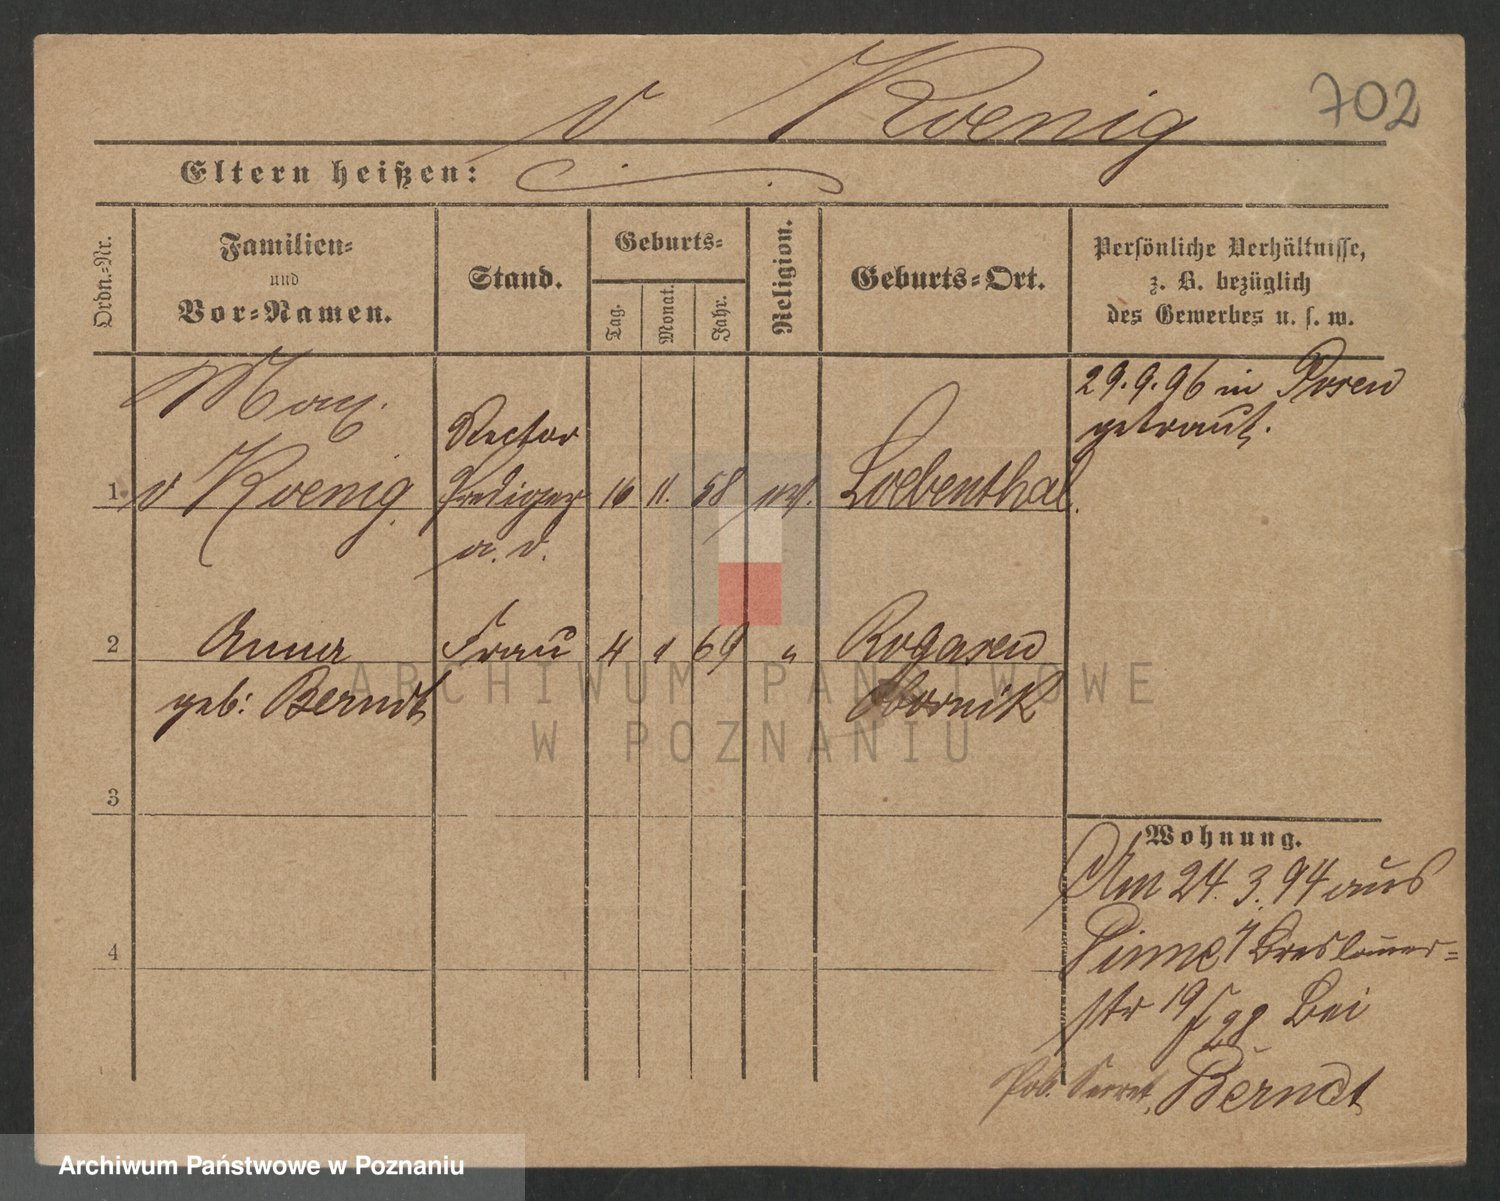 v Koenig
702
Eltern heißen:
Ordn.-Nr.
Familien-
und
Vor-Namen.
Stand.
Geburts-
Tag.
Monat.
Jahr.
Religion.
Geburts-Ort.
Persönliche Verhältnisse,
z. B. bezüglich
des Gewerbes u. s. w.
Max
v Koenig
1
Rector
Prediger
a. d.
16 11. 58 evl.
Loebenthal
29.9.96 in Posen
getraut.
2
Anna
geb: Berndt
Frau
4 1 69 "
Rogasen
Obornik
3
4
Wohnung.
Am 24.3.94 aus
Pinne Breslauer=
str 19 bei
Berndt
ARCHIWUM PAŃSTWOWE
W POZNANIU
Archiwum Państwowe w Poznaniu